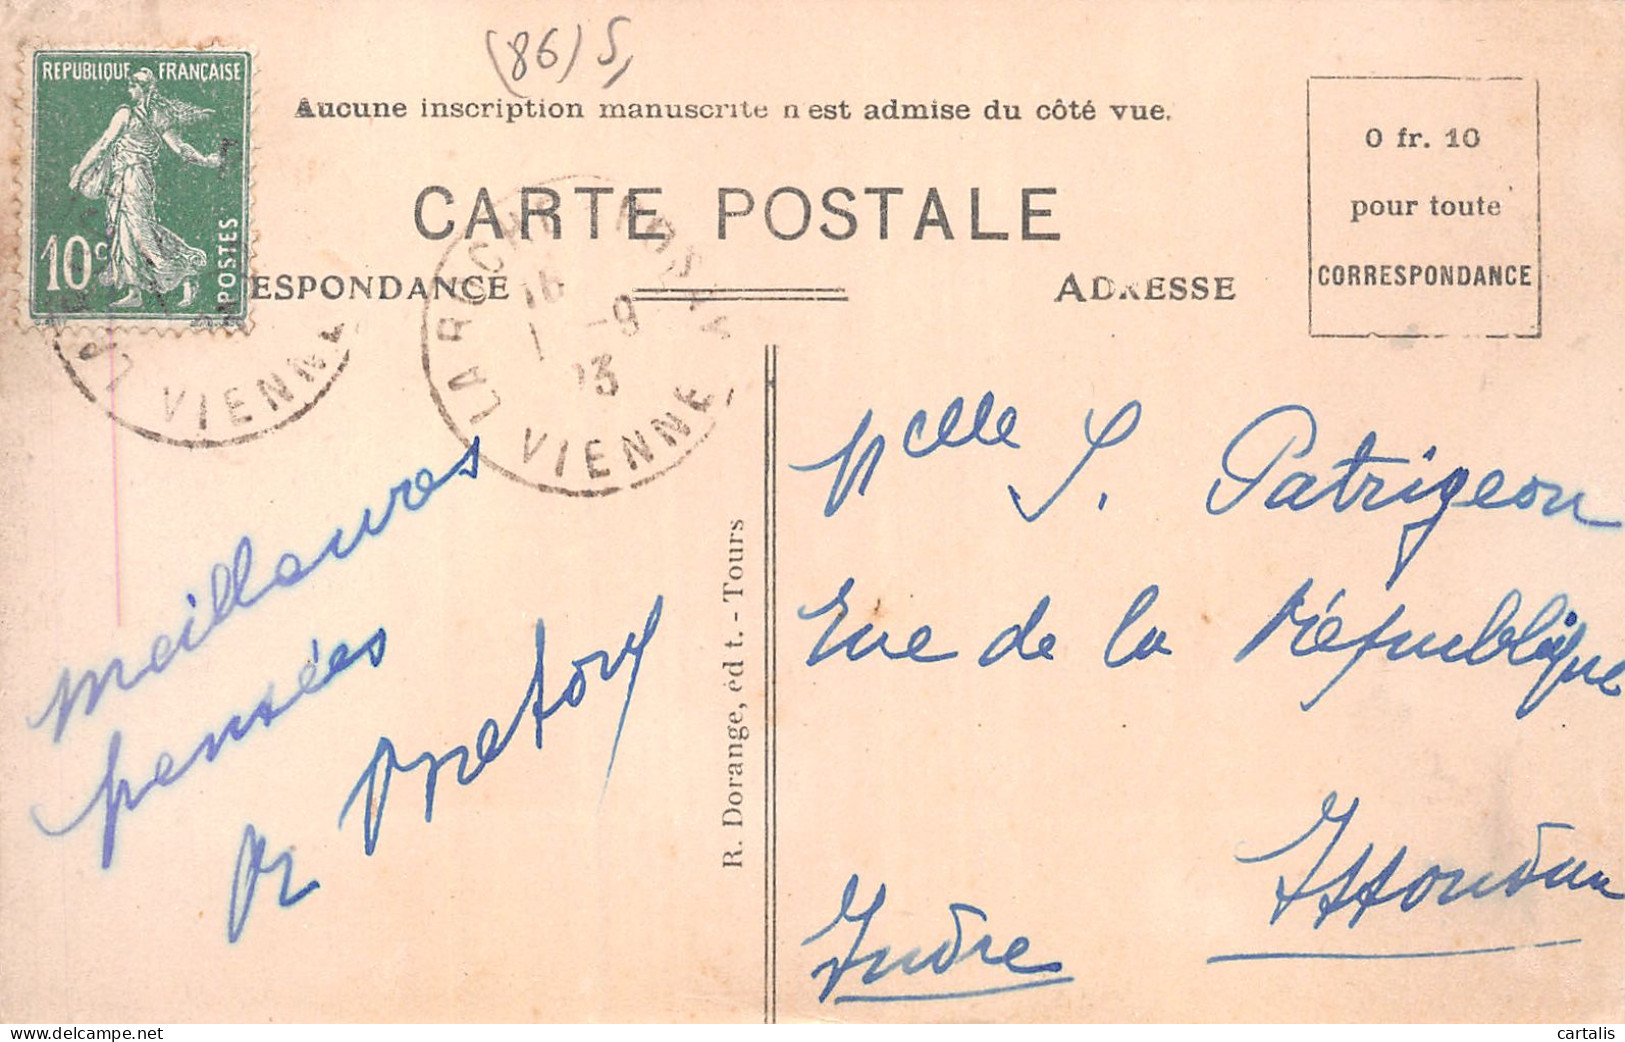 (86) S,
REPUBLIQUE FRANÇAISE
10c
POSTES
Aucune inscription manuscrite n'est admise du côté vue.
CARTE POSTALE
ESPONDANCE
ADRESSE
0 fr. 10
pour toute
CORRESPONDANCE
VIENN
LA ROCHE POSAY
16
1 -9
23
VIENNE
meilleures
pensées
R Pretory
R. Dorange, édt. - Tours
Melle S. Patrigeon
Rue de la République
Issoudun
Indre
delcampe.net
cartalis